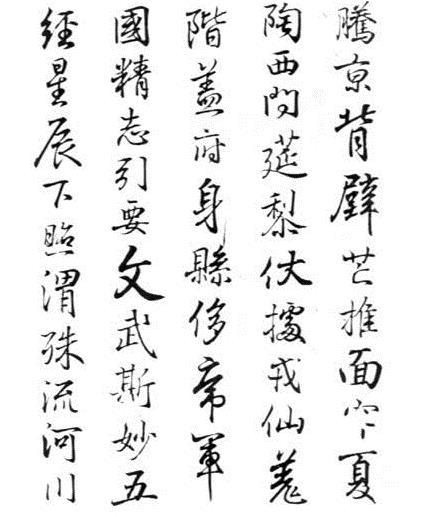 騰京背璧芒推面夏
陶西問筵黎伏據戎仙羌
階蓋府身縣侈帝軍
國精志引要文武斯妙五
經星辰下照渭殊流河川